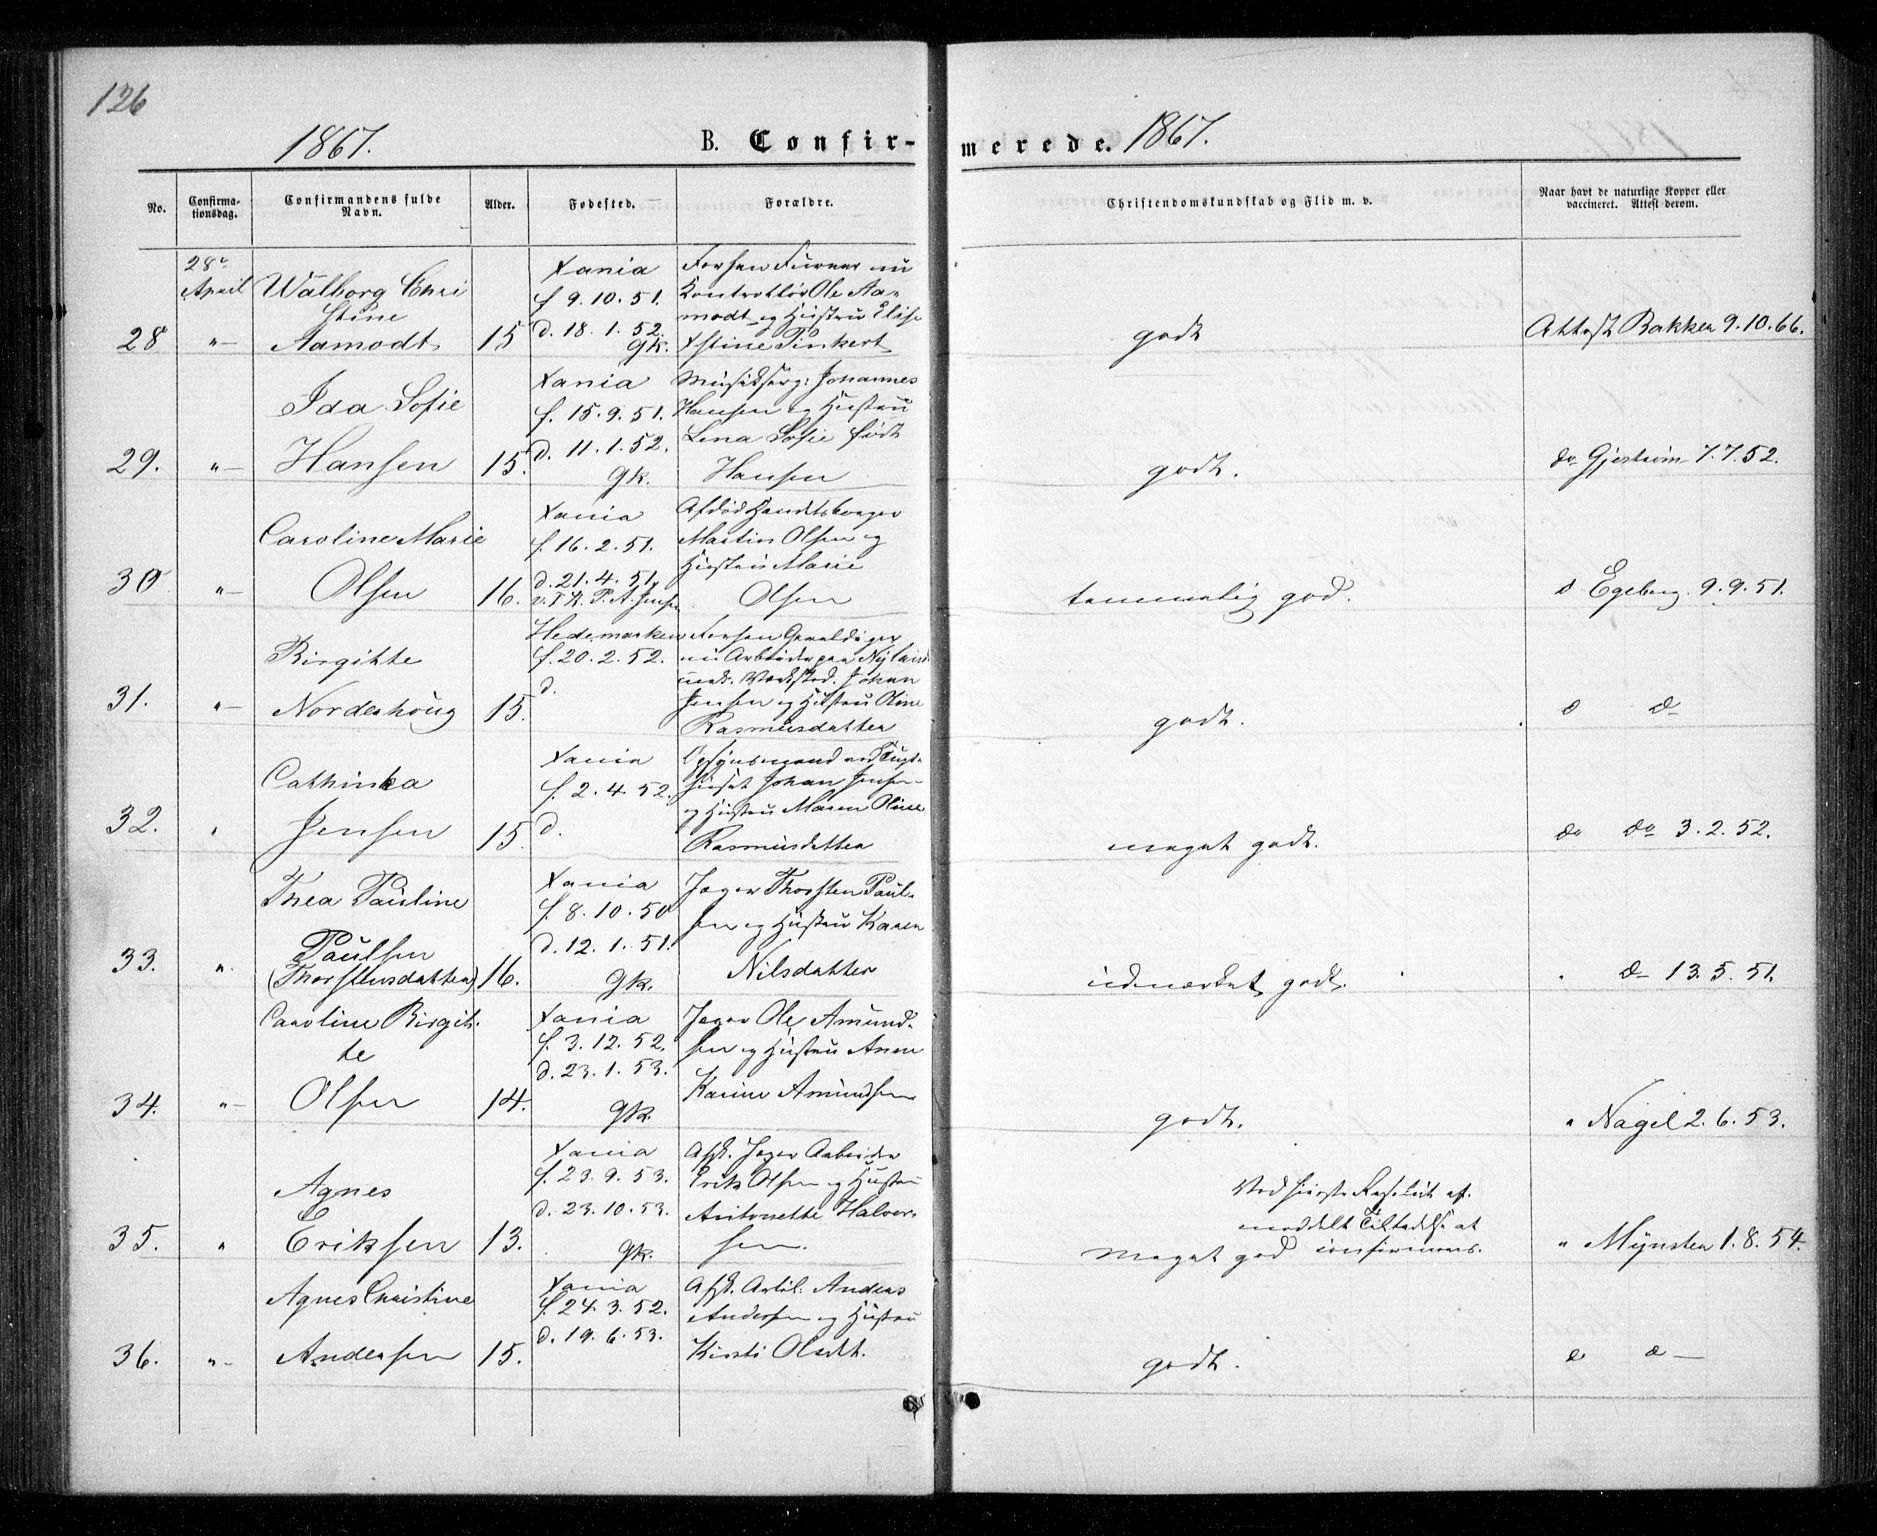 126
1867.
B. Confir-
merede. 1867.
No.
Confirma-
tionsdag.
Confirmandens fulde
Navn.
Alder.
Fødested.
Forældre.
Christendomskundskab og Flid m. v.
Naar havt de naturlige Kopper eller
vaccineret. Attest derom.
28de
April
28
"—
Walborg Chri
stine
Aamodt
15
Xania
f 9. 10. 51.
d. 18. 1. 52.
gk.
nu
Kontrollør Ole Aa-
modt og Hustru Elise
Xstine Pinkert
godt
Attest Bakken 9. 10. 66.
29.
"—
Ida Sofie
Hansen
15.
Xania
f. 15. 9. 51.
d. 11. 1. 52.
gk.
Johannes
Hansen og Hustru
Lena Sofie født
Hansen
godt.
do Gjestrøm 7. 7. 52.
30
"—
Caroline Marie
Olsen
16.
Xania
f. 16. 2. 51.
d. 21. 4. 51.
v. T. K. P. A. Jensen
Afdød Handelsborger
Martin Olsen og
Hustru Marie
Olsen
temmelig god.
d Egeberg 9. 9. 51.
31.
"—
Birgitte
Norderhoug
15.
Hedemarken
f. 20. 2. 52.
d.
nu Arbeider paa Nyland
mek. Værksted. Johan
Jensen og Hustru Oline
Rasmusdatter
godt.
d d—
32.
"
Cathinka
Jensen
15.
Xania
f. 2. 4. 52.
d.
Opsynsmand ved Tugt-
huset Johan Jensen
og Hustru Maren Oline
Rasmusdatter
meget godt.
do do 3. 2. 52.
33.
"
Thea Pauline
Paulsen
(Thorstensdatter)
16.
Xania
f. 8. 10. 50
d. 12. 1. 51.
gk.
Jæger Thorsten Paul-
sen og Hustru Karen
Nilsdatter
udmærket godt.
" d— 13. 5. 51.
34.
"—
Caroline Birgit-
te
Olsen
14.
Xania
f. 3. 12. 52.
d. 23. 1. 53.
gk.
Jæger Ole Amund-
sen og Hustru Anne
Karine Amundsen
godt.
" Nagel 2. 6. 53.
35.
"
Agnes
Eriksen
13.
Xania
f. 23. 9. 53.
d. 23. 10. 53.
gk.
Afsk. Jæger Arbeider
Erik Olsen og Hustru
Antonette Halvor-
sen.
Ved høieste Resolut. af.
meddelt Tilladelse at
Meget god confirmeres.
" Mynster 1. 8. 54.
36.
"—
Agnes Christine
Andersen
15.
Xania
f. 24. 3. 52.
d. 19. 6. 53.
Afsk. Artil. Anders
Andersen og Hustru
Kirsti Olsdt.
godt.
d d—